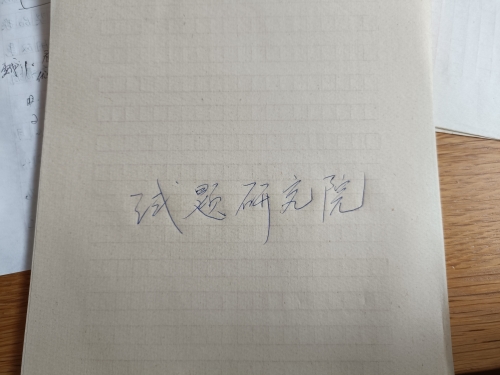 试题研究院